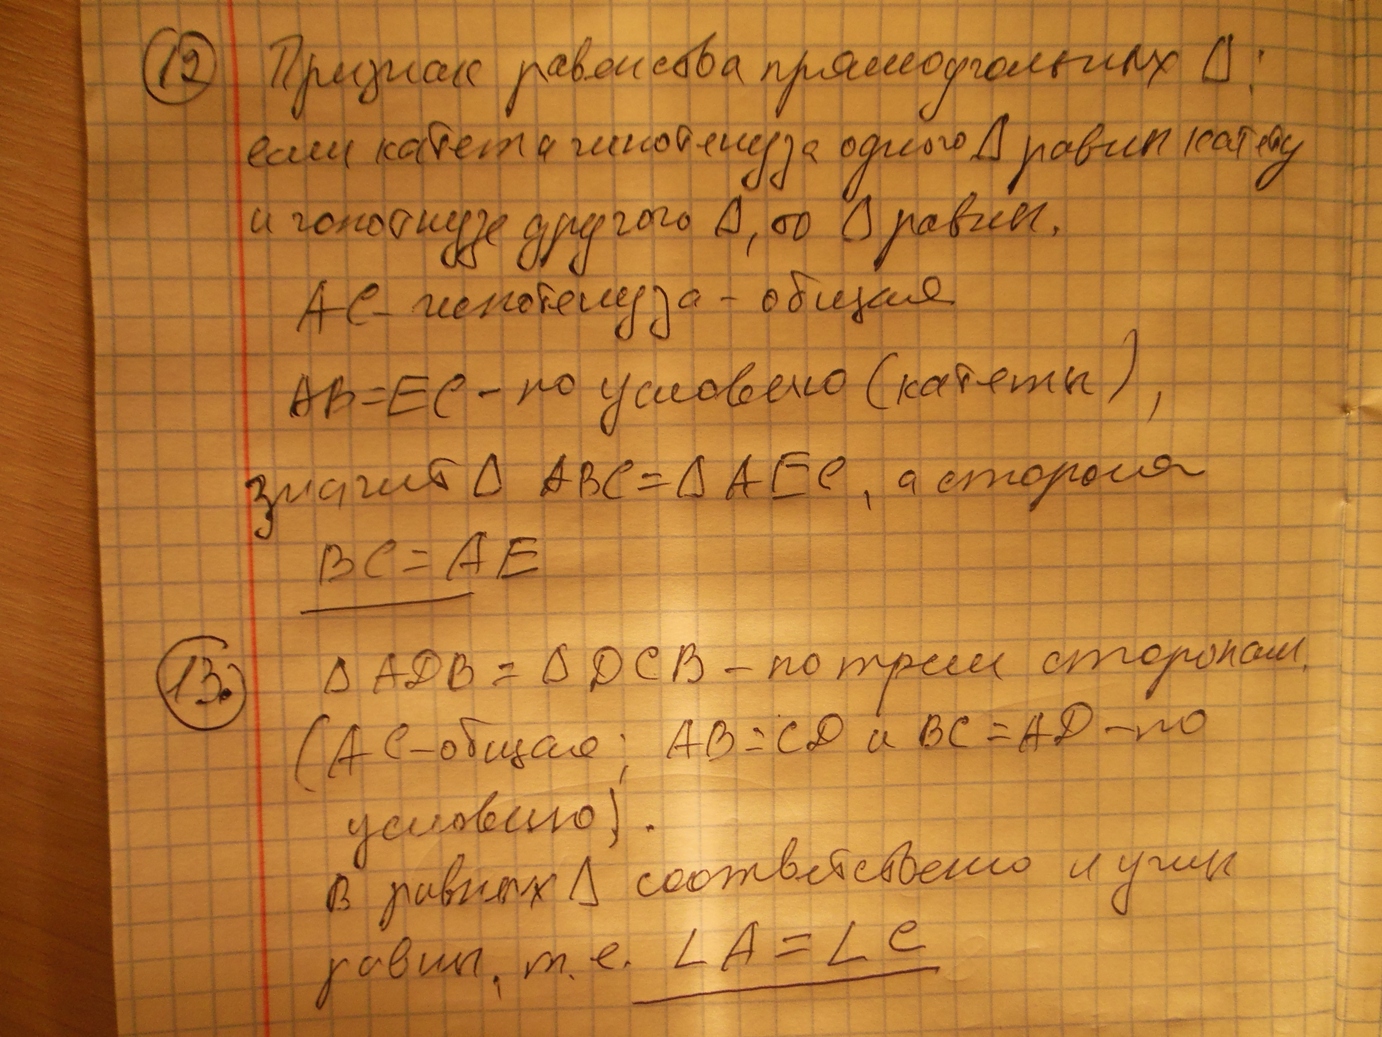 12 Признак равенства прямоугольных Δ:
если катет и гипотенуза одного Δ равны катету
и гипотенузе другого Δ, то Δ равны.
AC - гипотенуза - общая
AB=EC - по условию (катеты),
значит Δ ABC = Δ AEC, а сторона
BC = AE
13. Δ ADB = Δ DCB - по трем сторонам.
(AC - общая; AB = CD и BC = AD - по
условию).
В равных Δ соответственно и углы
равны, т.е. ∠A = ∠C